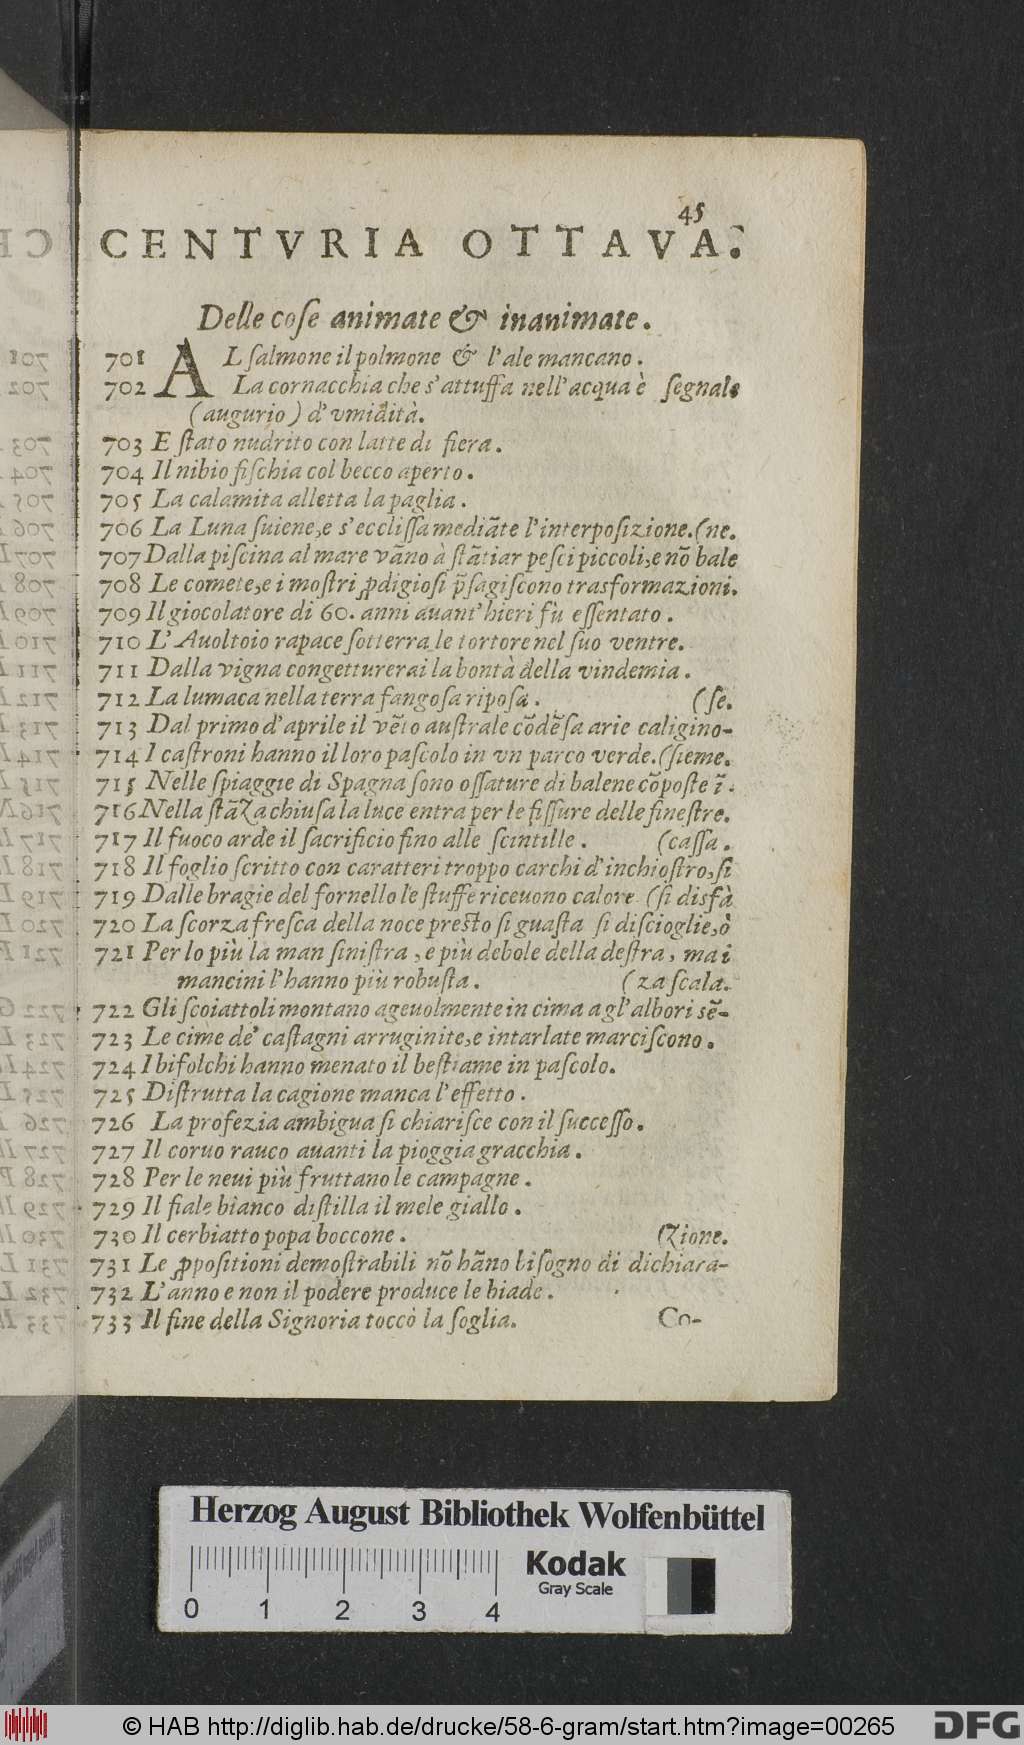 45
CENTVRIA OTTAVA.
Delle coſe animate & inanimate.
701 AL ſalmone il polmone & l'ale mancano.
702 La cornacchia che s'attuffa nell'acqua è ſegnale
(augurio) d'vmidità.
703 E ſtato nudrito con latte di fiera.
704 Il nibio fiſchia col becco aperto.
705 La calamita alletta la paglia.
706 La Luna ſuiene, e s'eccliſſa mediãte l'interpoſizione. (ne.
707 Dalla piſcina al mare vãno à ſtãtiar peſci piccoli, e nõ bale
708 Le comete, e i moſtri ꝓdigioſi p̃ſagiſcono trasformazioni.
709 Il giocolatore di 60. anni auant'hieri fù eſſentato.
710 L'Auoltoio rapace ſotterra le tortore nel ſuo ventre.
711 Dalla vigna congetturerai la bontà della vindemia.
712 La lumaca nella terra fangoſa ripoſa. (ſe.
713 Dal primo d'aprile il vẽto auſtrale cõdẽſa arie caligino-
714 I caſtroni hanno il loro paſcolo in vn parco verde. (ſieme.
715 Nelle ſpiaggie di Spagna ſono oſſature di balene cõpoſte ĩ.
716 Nella ſtãza chiuſa la luce entra per le fiſſure delle fineſtre.
717 Il fuoco arde il ſacrificio fino alle ſcintille. (caſſa.
718 Il foglio ſcritto con caratteri troppo carchi d'inchioſtro, ſi
719 Dalle bragie del fornello le ſtuffe riceuono calore (ſi disfà
720 La ſcorza freſca della noce preſto ſi guaſta ſi diſcioglie, ò
721 Per lo più la man ſiniſtra, e più debole della deſtra, ma i
mancini l'hanno più robuſta. (za ſcala.
722 Gli ſcoiattoli montano ageuolmente in cima agl'albori sẽ-
723 Le cime de' caſtagni arruginite, e intarlate marciſcono.
724 I bifolchi hanno menato il beſtiame in paſcolo.
725 Diſtrutta la cagione manca l'effetto.
726 La profezia ambigua ſi chiariſce con il ſucceſſo.
727 Il coruo rauco auanti la pioggia gracchia.
728 Per le neui più fruttano le campagne.
729 Il fiale bianco diſtilla il mele giallo.
730 Il cerbiatto popa boccone. (zione.
731 Le ꝓpoſitioni demoſtrabili nõ hãno biſogno di dichiara-
732 L'anno e non il podere produce le biade.
733 Il fine della Signoria toccò la ſoglia. Co-
Herzog August Bibliothek Wolfenbüttel
Kodak
Gray Scale
0 1 2 3 4
© HAB http://diglib.hab.de/drucke/58-6-gram/start.htm?image=00265
DFG